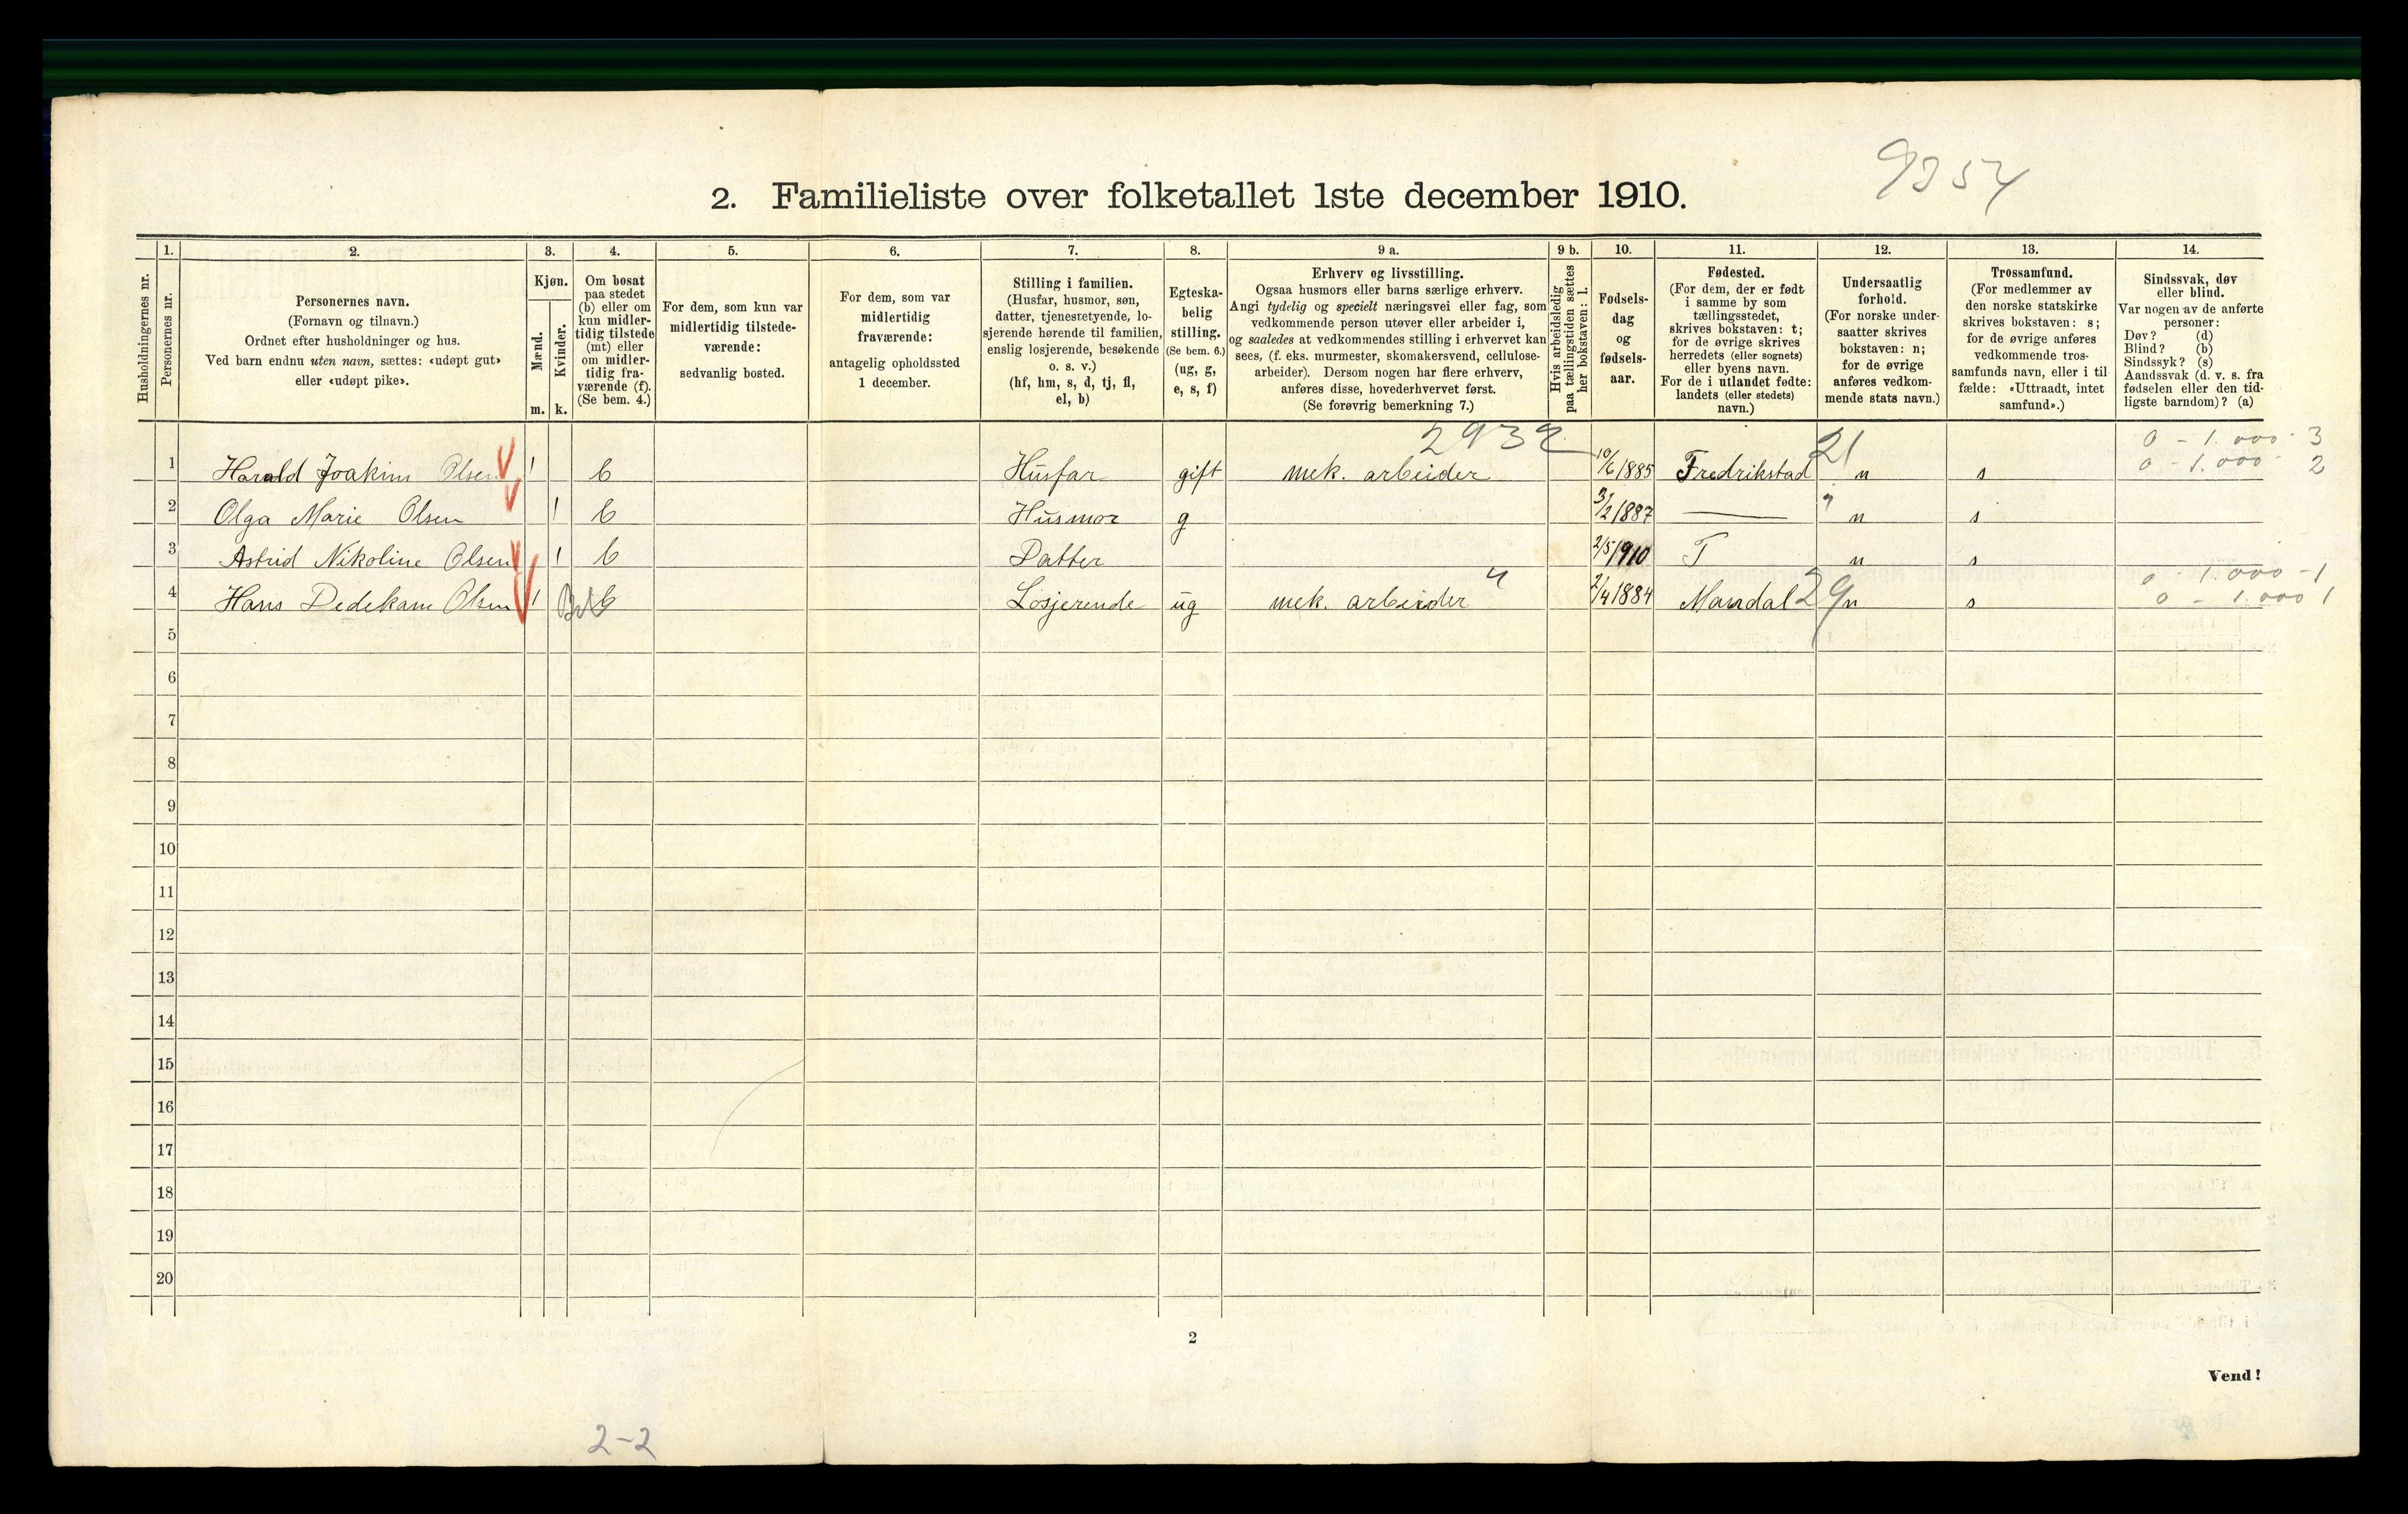 9354
2. Familieliste over folketallet 1ste december 1910.
1. 2. 3. 4. 5. 6. 7. 8. 9 a. 9 b. 10. 11. 12. 13. 14.
Husholdningernes nr.
Personernes nr.
Personernes navn.
(Fornavn og tilnavn.)
Ordnet efter husholdninger og hus.
Ved barn endnu uten navn, sættes: «udøpt gut»
eller «udøpt pike».
Kjøn.
Mænd.
Kvinder.
m. k.
Om bosat
paa stedet
(b) eller om
kun midler-
tidig tilstede
(mt) eller
om midler-
tidig fra-
værende (f).
(Se bem. 4.)
For dem, som kun var
midlertidig tilstede-
værende:
sedvanlig bosted.
For dem, som var
midlertidig
fraværende:
antagelig opholdssted
1 december.
Stilling i familien.
(Husfar, husmor, søn,
datter, tjenestetyende, lo-
sjerende hørende til familien,
enslig losjerende, besøkende
o. s. v.)
(hf, hm, s, d, tj, fl,
el, b)
Egteska-
belig
stilling.
(Se bem. 6.)
(ug, g,
e, s, f)
Erhverv og livsstilling.
Ogsaa husmors eller barns særlige erhverv.
Angi tydelig og specielt næringsvei eller fag, som
vedkommende person utøver eller arbeider i,
og saaledes at vedkommendes stilling i erhvervet kan
sees, (f. eks. murmester, skomakersvend, cellulose-
arbeider). Dersom nogen har flere erhverv,
anføres disse, hovederhvervet først.
(Se forøvrig bemerkning 7.)
Hvis arbeidsledig
paa tællingstiden sættes
her bokstaven: l.
Fødsels-
dag
og
fødsels-
aar.
Fødested.
(For dem, der er født
i samme by som
tællingsstedet,
skrives bokstaven: t;
for de øvrige skrives
herredets (eller sognets)
eller byens navn.
For de i utlandet fødte:
landets (eller stedets)
navn.)
Undersaatlig
forhold.
(For norske under-
saatter skrives
bokstaven: n;
for de øvrige
anføres vedkom-
mende stats navn.)
Trossamfund.
(For medlemmer av
den norske statskirke
skrives bokstaven: s;
for de øvrige anføres
vedkommende tros-
samfunds navn, eller i til
fælde: «Uttraadt, intet
samfund».)
Sindssvak, døv
eller blind.
Var nogen av de anførte
personer:
Døv? (d)
Blind? (b)
Sindssyk? (s)
Aandssvak (d. v. s. fra
fødselen eller den tid-
ligste barndom)? (a)
2932 21 0 - 1.000 - 3
1 Harald Joakim Olsen 1 b Husfar gift mek. arbeider 10/6 1885 Fredrikstad n s 0 - 1.000 - 2
2 Olga Marie Olsen 1 b Husmor g 3/2 1887 — " n s
3 Astrid Nikoline Olsen 1 b Datter 2/5 1910 T n s
" 0 - 1.000 - 1
4 Hans Dedekam Olsen 1 b Losjerende ug mek. arbeider 2/4 1884 Mandal 29 n s 0 - 1.000 1
5
6
7
8
9
10
11
12
13
14
15
16
17
18
19
20
2
Vend!
2-2